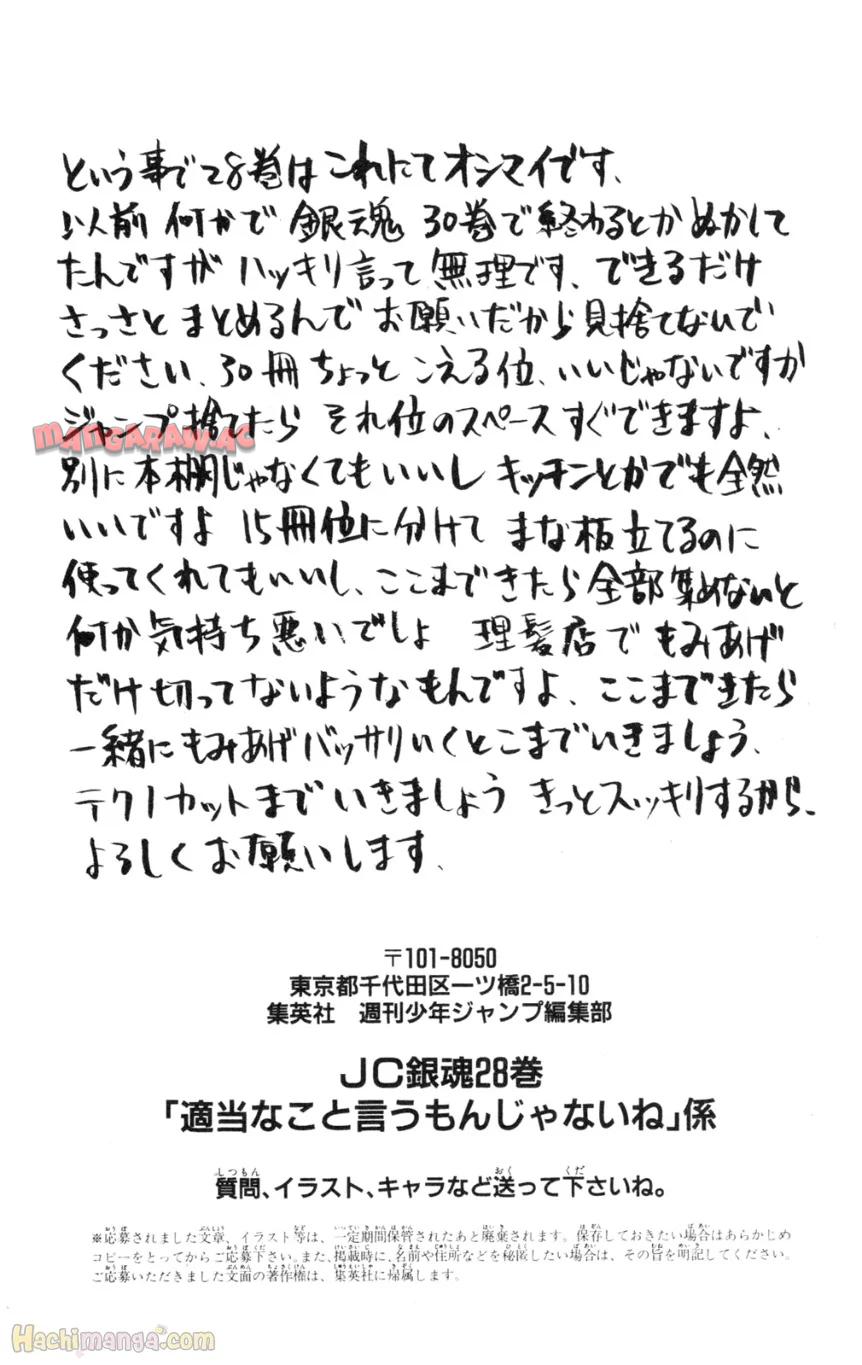 という事で28巻はこれにてオシマイです、
以前何かで銀魂30巻で終わるとかぬかして
たんですがハッキリ言って無理です、できるだけ
さっさとまとめるんでお願いだから見捨てないで
ください、30冊ちょっとこえる位、いいじゃないですか
ジャンプ捨てたらそれ位のスペースすぐできますよ、
MANGARAW.AC
別に本棚じゃなくてもいいしキッチンとかでも全然
いいですよ 15冊位に分けてまな板立てるのに
使ってくれてもいいし、ここまできたら全部集めないと
何か気持ち悪いでしょ 理髪店でもみあげ
だけ切ってないようなもんですよ、ここまできたら
一緒にもみあげバッサリいくとこまでいきましょう、
テクノカットまでいきましょう きっとスッキリするから、
よろしくお願いします、
〒101-8050
東京都千代田区一ツ橋2-5-10
集英社 週刊少年ジャンプ編集部
JC銀魂28巻
「適当なこと言うもんじゃないね」係
質問、イラスト、キャラなど送って下さいね。
※応募されました文章、イラスト等は、一定期間保管されたあと廃棄されます。保存しておきたい場合はあらかじめ
コピーをとってからご応募下さい。また、掲載時に、名前や住所などを秘匿したい場合は、その旨を明記してください。
ご応募いただきました文面の著作権は、集英社に帰属します。
Hachimanga.com